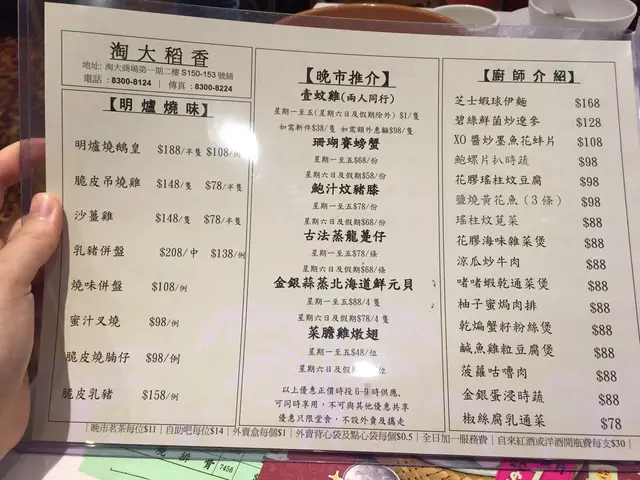 淘大稻香
地址: 淘大商場第一期二樓 S150-153 號鋪
電話 : 8300-8124 | 傳真 : 8300-8224
【明爐燒味】
明爐燒鵝皇 $188/半隻 $108/例
脆皮吊燒雞 $148/隻 $78/半隻
沙薑雞 $148/隻 $78/半隻
乳豬併盤 $208/中 $138/例
燒味併盤 $108/例
蜜汁叉燒 $98/例
脆皮燒腩仔 $98/例
脆皮乳豬 $158/例
【晚市推介】
壹蚊雞(兩人同行)
星期一至五(星期六日及假期除外) $1/隻
如需新件$38/隻 如需額外惠顧$98/隻
珊瑚賽螃蟹
星期一至五$68/份
星期六日及假期$58/份
鮑汁炆豬膝
星期一至五$78/份
星期六日及假期$68/份
古法蒸龍躉仔
星期一至五$78/條
星期六日及假期$68/條
金銀蒜蒸北海道鮮元貝
星期一至五$88/4 隻
星期六日及假期$78/4 隻
菜膽雞燉翅
星期一至五$48/位
星期六日及假
以上優惠正價時段 6-9 時供應,
可同時享用，不可與其他優惠共享
優惠只限堂食，不設外賣及攜走
【廚師介紹】
芝士蝦球伊麵 $168
碧綠鮮菌炒遼參 $128
XO 醬炒墨魚花蚌片 $108
鮑螺片扒時蔬 $98
花膠瑤柱炆豆腐 $98
鹽燒黃花魚（3 條） $98
瑤柱炆莧菜 $88
花膠海味雜菜煲 $88
涼瓜炒牛肉 $88
啫啫蝦乾通菜煲 $88
柚子蜜焗肉排 $88
乾煸蟹籽粉絲煲 $88
鹹魚雞粒豆腐煲 $88
菠蘿咕嚕肉 $88
金銀蛋浸時蔬 $88
椒絲腐乳通菜 $78
| 晚市茗茶每位$11 | 自助吧每位$14 | 外賣盒每個$1 | 外賣背心袋及點心袋每個$0.5 | 全日加一服務費 | 自來紅酒或洋酒開瓶費每支$30 |
排骨 7456